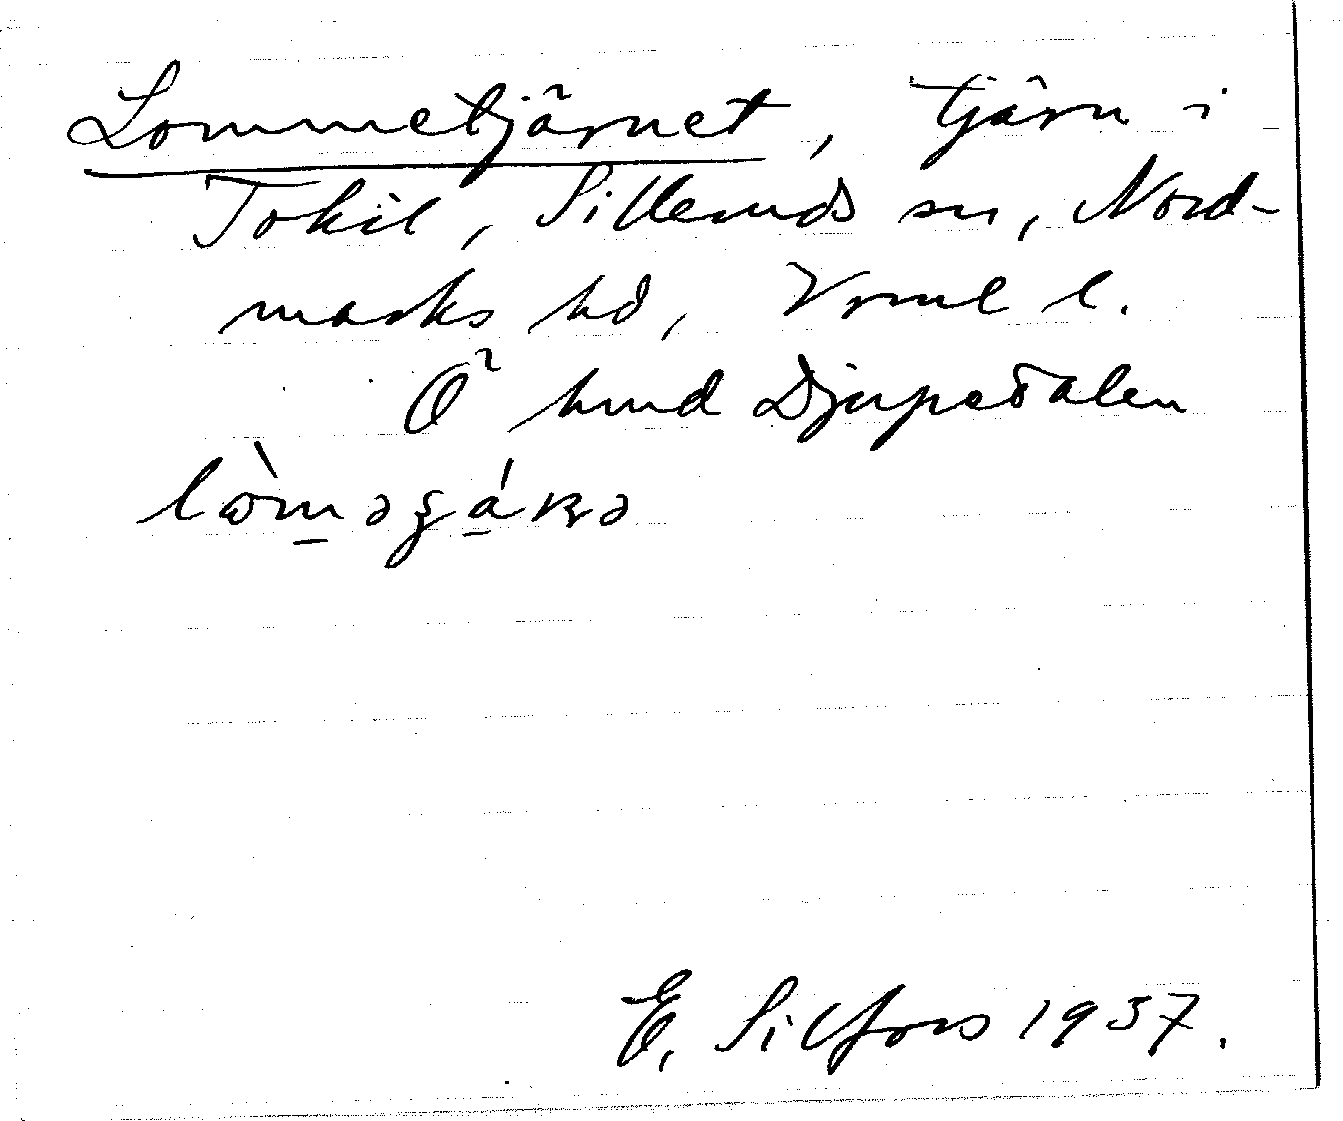 Lommetjärnet, tjärn i
Tokil, Silleruds sn, Nord-
marks hd, Vrml l.
Ö hmd Djupedalen
E. Silfors 1937.